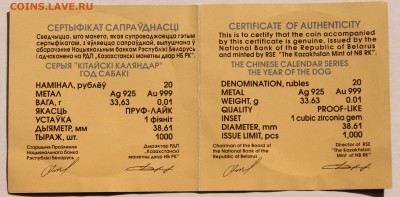 COINS.LAVE.RU
СЕРТЫФІКАТ САПРАЎДНАСЦІ
Сведчыцца, што манета, якая суправаджаецца гэтым
сертыфікатам, з'яўляецца сапраўднай, выпушчана ў
абарачэнне Нацыянальным банкам Рэспублікі Беларусь
і адчаканена на РДП „Казахстанскі манетны двор НБ РК".
СЕРЫЯ "КІТАЙСКІ КАЛЯНДАР"
ГОД САБАКІ
НАМІНАЛ, рублёў 20
МЕТАЛ Ag 925 Au 999
ВАГА, г 33,63 0,01
ЯКАСЦЬ ПРУФ-ЛАЙК
УСТАЎКА 1 фіяніт
ДЫЯМЕТР, мм 38.61
ТЫРАЖ, шт. 1000
Старшыня Праўлення
Нацыянальнага банка
Рэспублікі Беларусь
Дырэктар РДП
„Казахстанскі
манетны двор НБ РК"
CERTIFICATE OF AUTHENTICITY
This is to certify that the coin accompanied
by this certificate is genuine, issued by the
National Bank of the Republic of Belarus
and minted by RSE "The Kazakhstan Mint of NB RK".
THE CHINESE CALENDAR SERIES
THE YEAR OF THE DOG
DENOMINATION, rubles 20
METAL Ag 925 Au 999
WEIGHT, g 33,63 0.01
QUALITY PROOF-LIKE
INSET 1 cubic zirconia gem
DIAMETER, mm 38.61
ISSUE LIMIT, pcs 1,000
Chairman of the Board
of the National Bank of the
Republic of Belarus
Director of RSE
"The Kazakhstan
Mint of NB RK"